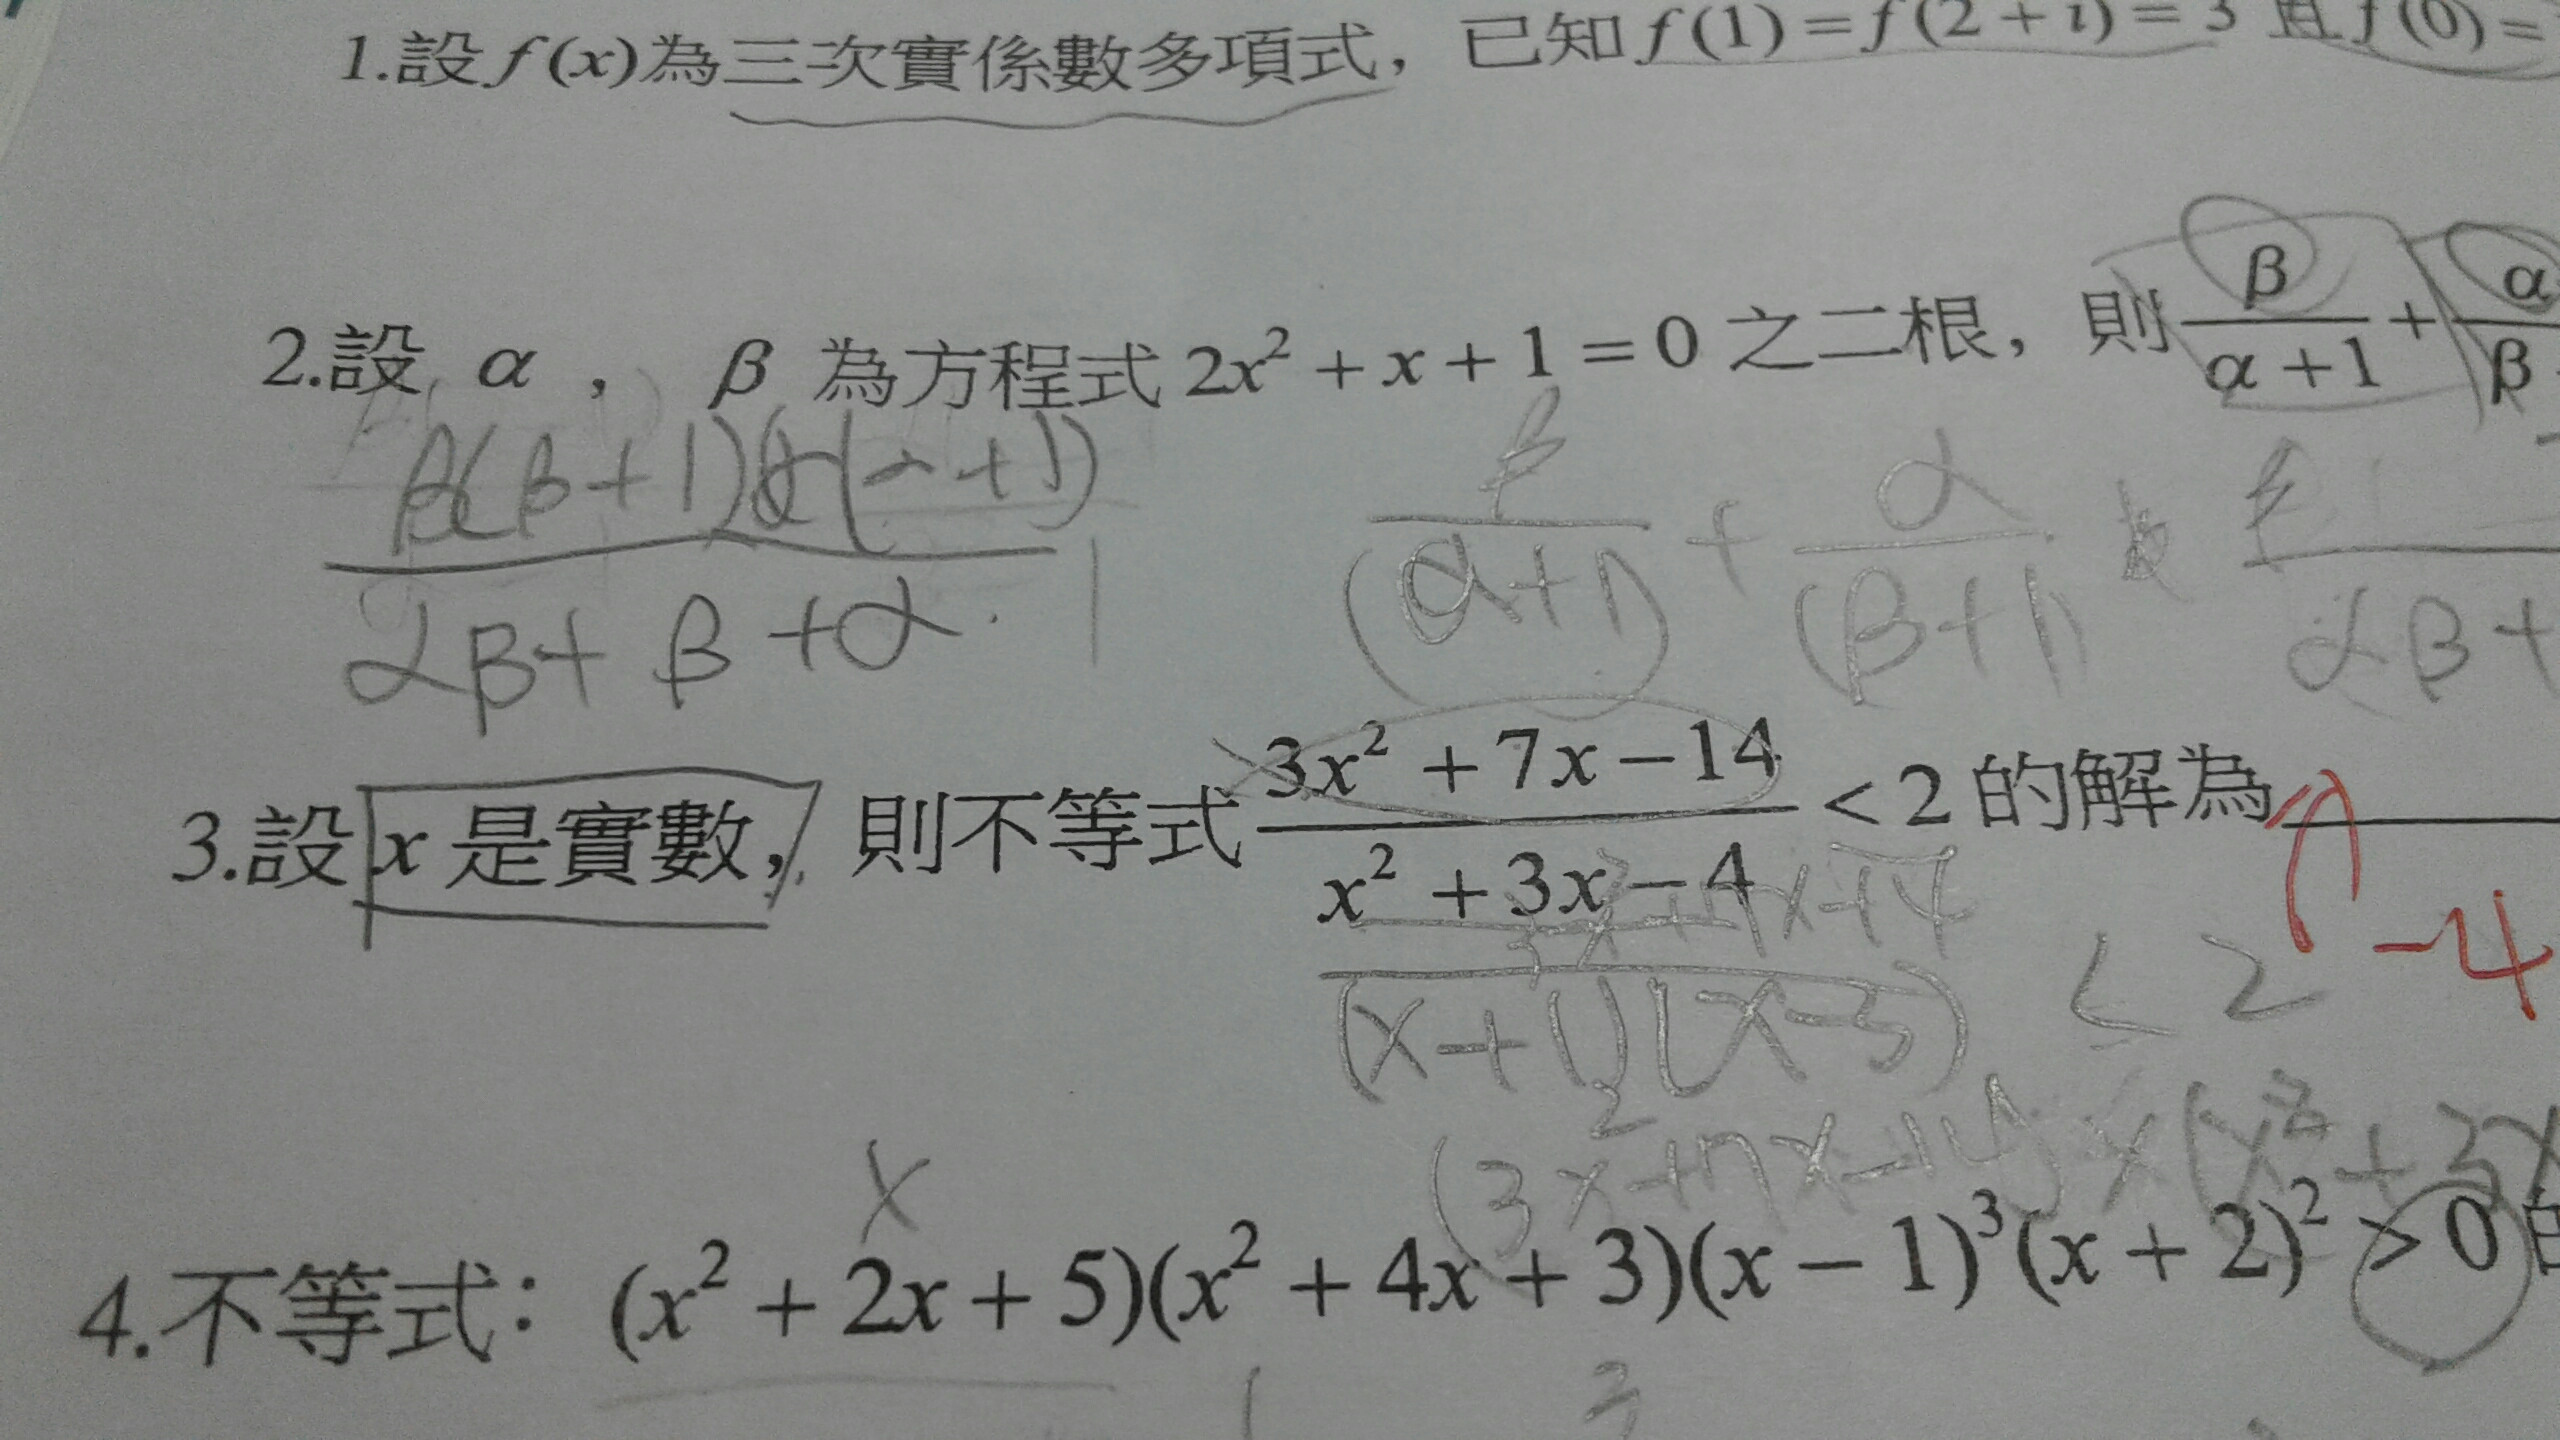 1.設 f(x)為三次實係數多項式，已知 f(1) = f(2 + i) = 3 且 f(0) =
2.設 α ， β 為方程式 2x² + x + 1 = 0 之二根，則 β/(α + 1) + α/β
β(β+1) α(α+1) / αβ + β + α . 1
β/(α+1) + α/(β+1)
αβ+
3.設 x 是實數，則不等式 (3x² + 7x − 14)/(x² + 3x − 4) < 2 的解為
-4
(x+1)(x-3) < 2
(3x²+7x-14)x(x²+3x
x
4.不等式：(x² + 2x + 5)(x² + 4x + 3)(x − 1)³(x + 2)² > 0 的
1 3